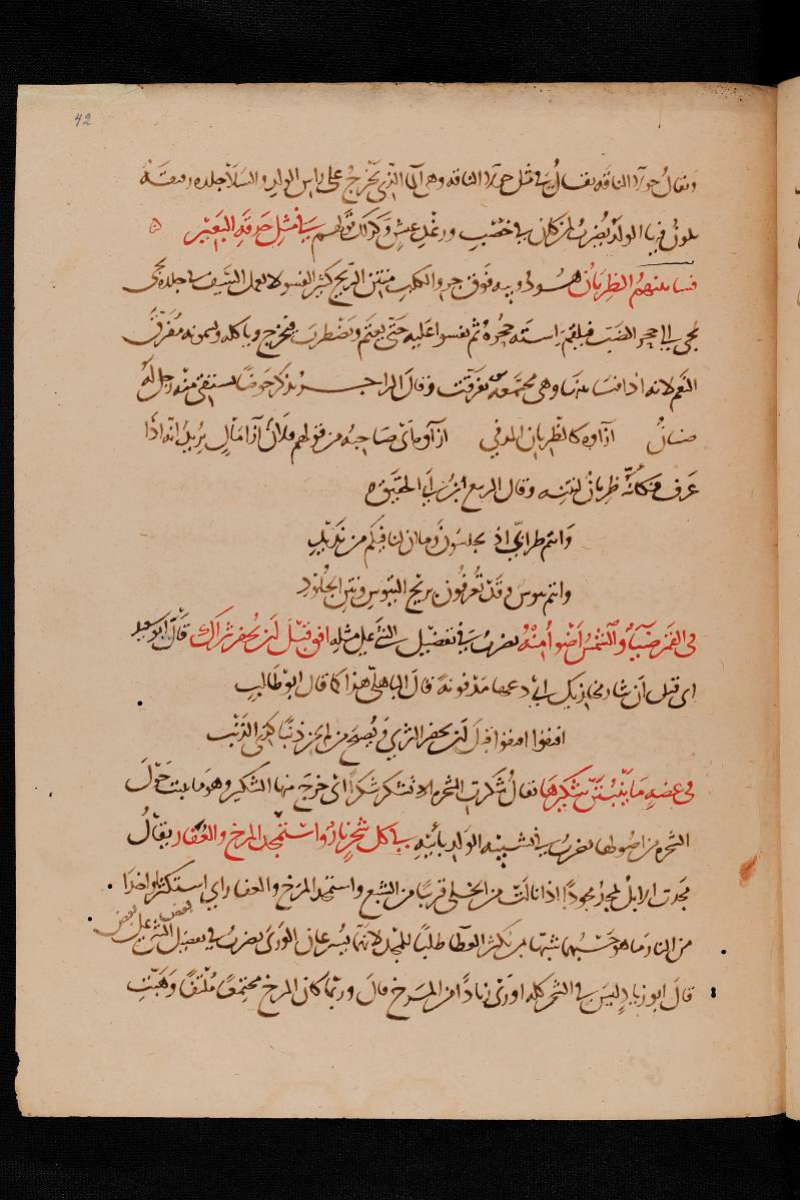 42
ويقال حولاء الناقة يقال في مثل حولاء الناقة وهي الماء الذي يخرج على راس الولد والسلا جلده رقيقة
يكون فيها الولد يضرب لمن كان في خصب ورغد عيش وكذلك قولهم في مثل حدقة البعير ه
فسا بينهم الظربان هو دويبه فوق جرو الكلب منتن الريح كثير الفسو لا يعمل السيف في جلده يجى
يجى الى حجر الضب فيلقم استه جحره ثم يفسوا عليه حتى يغتم ويضطرب فيخرج وياكله ويسمونه مفرق
النعم لانه اذا فسا بينها وهي مجتمعة تفرقت وقال الراجز يذكر حوضا يستقى منه رجل له
صنان ازاوه كالظربان الموفي ازاوه اى صاحبه من قولهم فلان ازا مال يريد انه اذا
عرف فكانه ظربان لنتنه وقال الربيع ابن ابي الحقيق ه
وانتم ظرابي اذ تجلسون وما ان لنا فيكم من نديد
وانتم تيوس وقد تعرفون بريح التيوس ونتن الجلود
في القمر ضياء والشمس اضوا منه يضرب في تفضيل الشي على مثله افق قبل ان يحفر ثراك قال ابو سعيد
اى قبل ان تثار مخازيك اى دعها مدفونة قال الباهلي هذا كما قال ابو طالب
افيقوا افيقوا قبل ان يحفر الثرى ويصبح من لم يجن ذنبا كذى الذنب
في عضه ما ينبتن شكيرها يقال شكرت الشجرة تشكر شكرا اى خرج منها الشكير وهو ما ينبت حول
الشجرة من اصولها يضرب في تشبيه الولد بابيه في كل شجر نار واستمجد المرخ والعفار يقال
مجدت الابل تمجد مجودا اذا نالت من الخلى قريبا من الشبع واستمجد المرخ والعفار اى استكثرا واخذا
من النار ما هو حسبهما شبها بمن يكثر العطا طلبا للمجد لانهما يسرعان الورى يضرب في تفضيل بعض الشي على بعض
قال ابو زياد ليس في الشجر كله اورى زنادا من المرخ قال وربما كان المرخ مجتمعا ملتفا وهبت